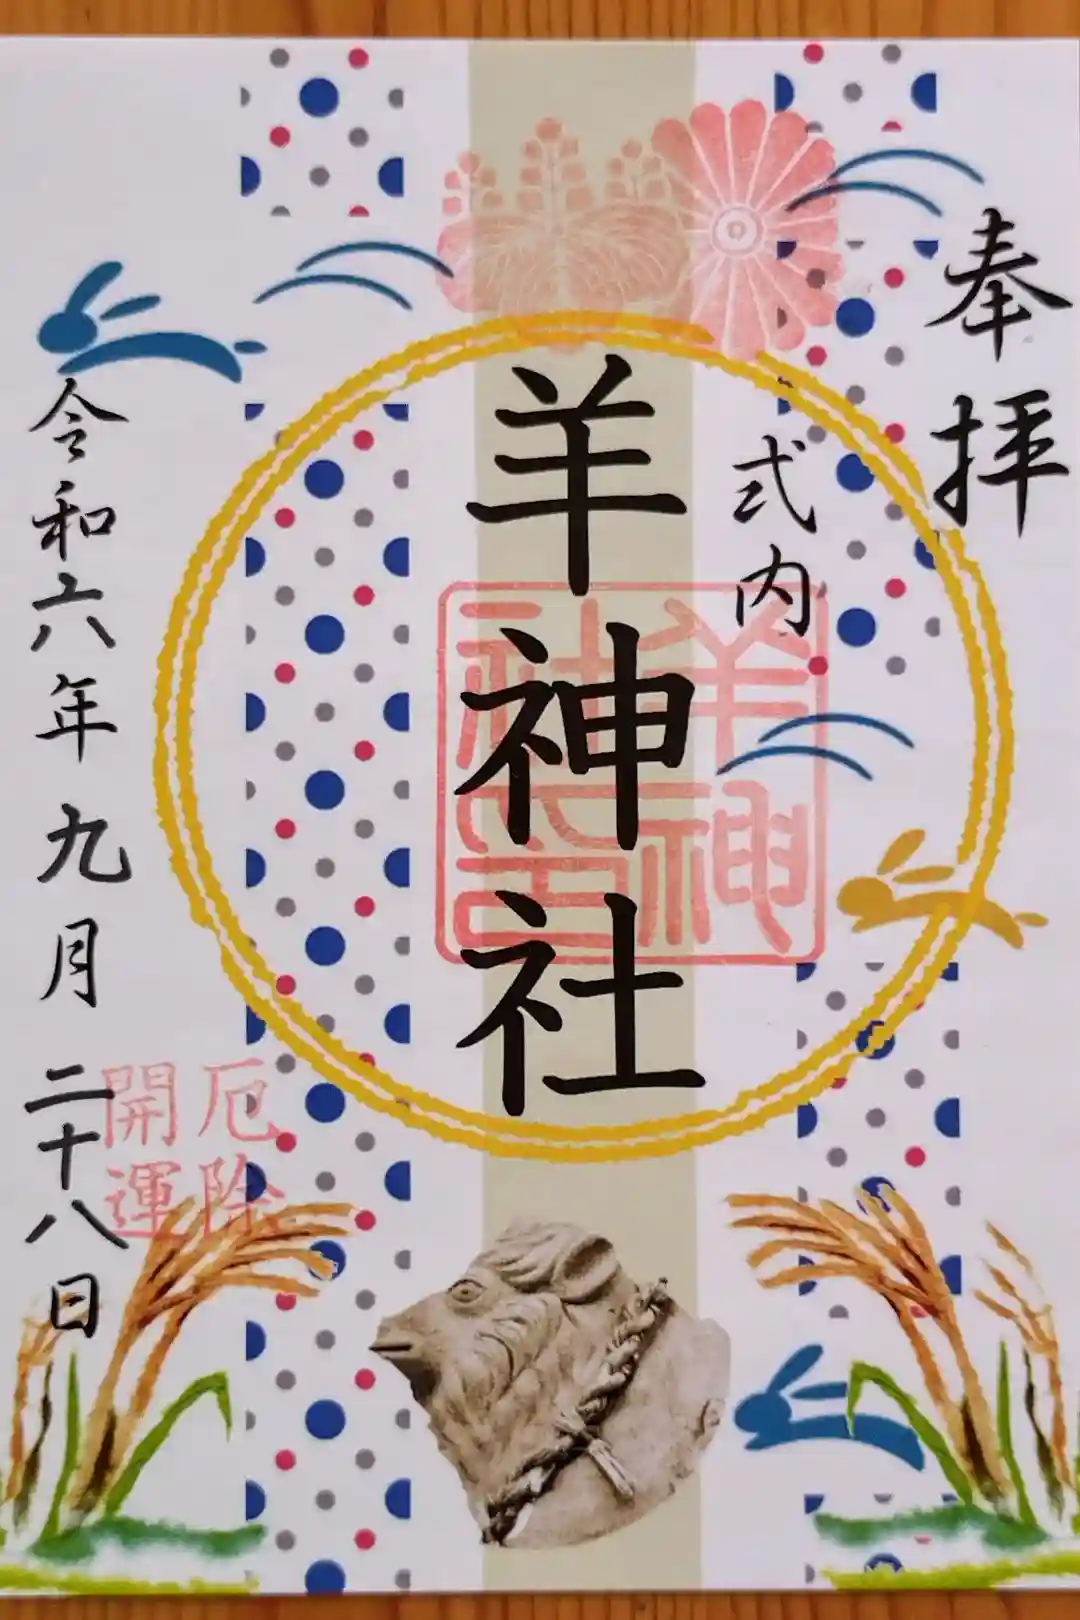 奉拝
式内
羊神社
羊神社印
厄除
開運
令和六年九月二十八日